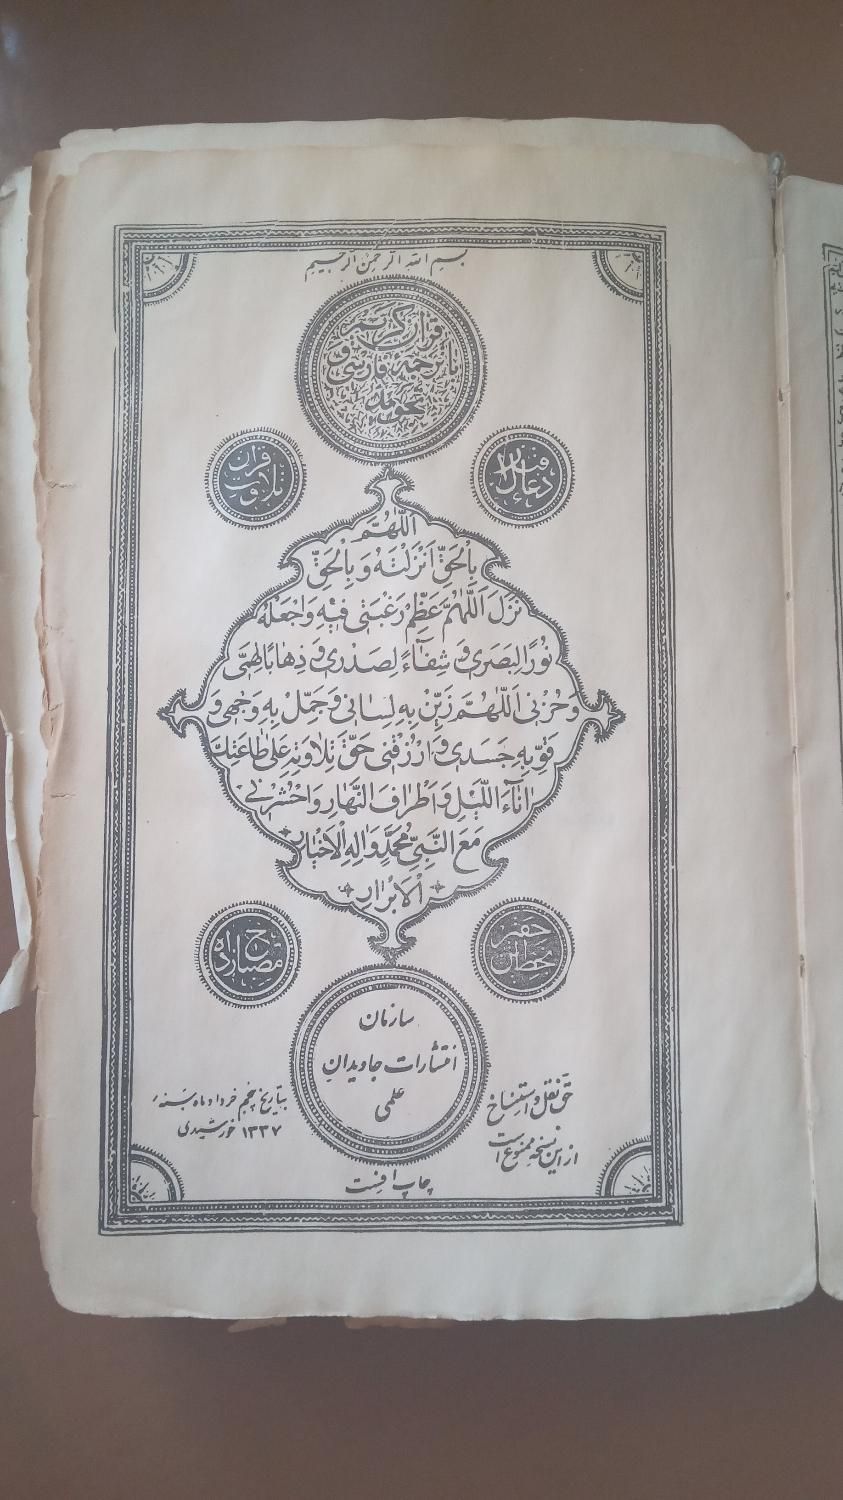 بسم الله الرحمن الرحیم
قرآن کریم
با ترجمه فارسی و
تجوید
دعای
قرآن
تلاوت
اَللّهُمَّ
بِالْحَقِّ اَنْزَلْتَهُ وَ بِالْحَقِّ
نَزَلَ اَللّهُمَّ عَظِّمْ رَغْبَتی فیهِ وَاجْعَلْهُ
نُورًا لِبَصَری وَ شِفاءً لِصَدْری وَ ذِهابًا لِهَمّی
وَ حُزْنی اَللّهُمَّ زَیِّنْ بِهِ لِسانی وَ جَمِّلْ بِهِ وَجْهی وَ
قَوِّ بِهِ جَسَدی وَ ارْزُقْنی حَقَّ تِلاوَتِهِ عَلی طاعَتِكَ
اناءَ اللَّیْلِ وَ اَطْرافَ النَّهارِ وَاحْشُرْنی
مَعَ النَّبِیِّ مُحَمَّدٍ وَالِهِ الْاَخْیارِ
الْاَبْرارِ
سازمان
انتشارات جاویدان
علمی
حق نقل و استنساخ
از این نسخه ممنوع است
بتاریخ پنجم خرداد ماه سنه
۱۳۳۷ خورشیدی
چاپ افست